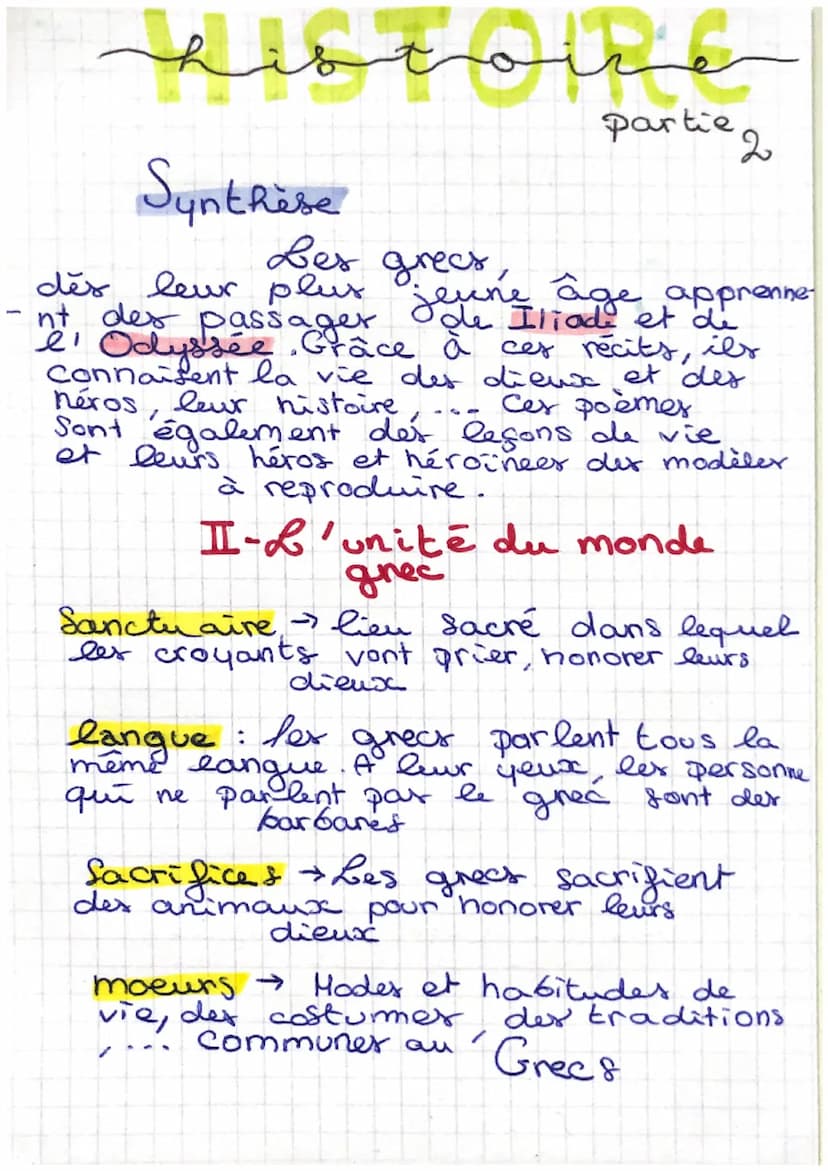 HISTOIRE
histoire
partie 2
Synthèse
Les grecs,
dès leur plus jeune âge apprenne-
- nt des passages de Iliade et de
l'Odyssée. Grâce à ces récits, ils
connaissent la vie des dieux et des
héros, leur histoire, ... Ces poèmes
sont également des leçons de vie
et leurs héros et héroïnees des modèles
à reproduire.
II-L'unité du monde
grec
Sanctuaire → lieu sacré dans lequel
les croyants vont prier, honorer leurs
dieux
langue : les grecs parlent tous la
même langue. A leur yeux, les personne
qui ne parlent pas le grec sont des
barbares
Sacrifices → Les grecs sacrifient
des animaux pour honorer leurs
dieux
moeurs → Modes et habitudes de
vie, des costumes, des traditions
, ... communes au Grecs